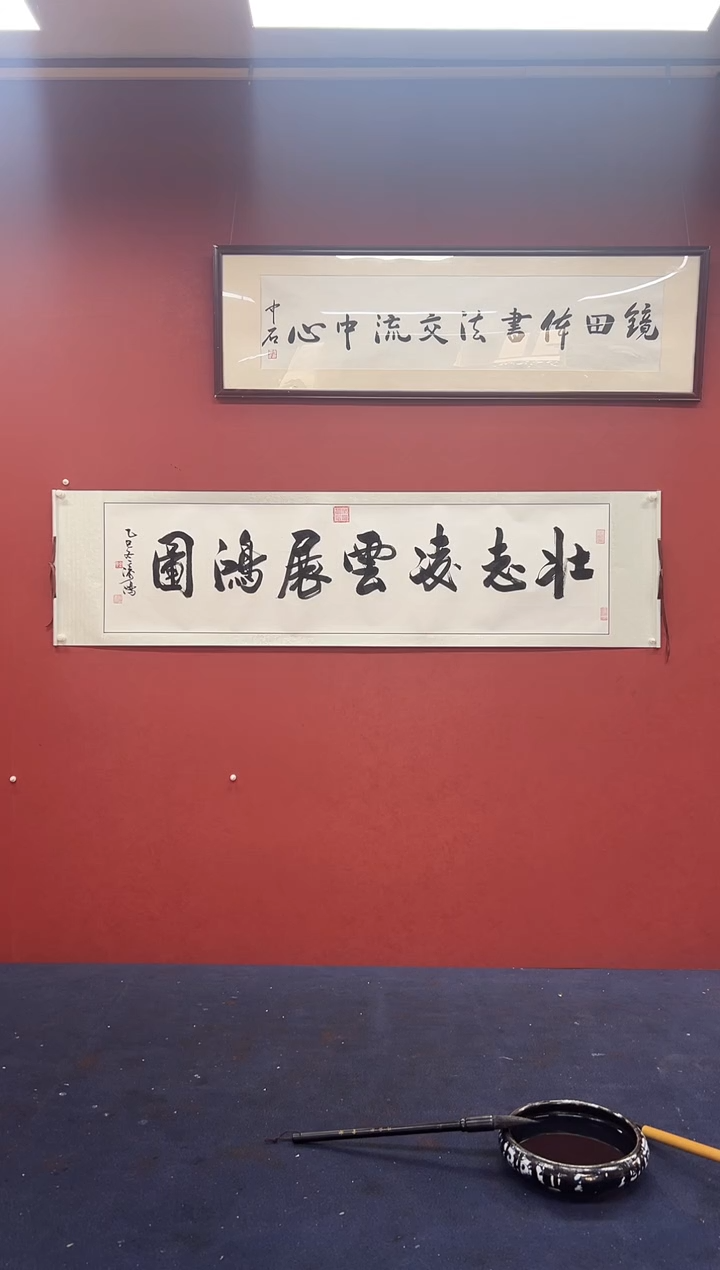 鏡田体書法交流中心
中石
壮志凌雲展鴻圖
乙巳冬